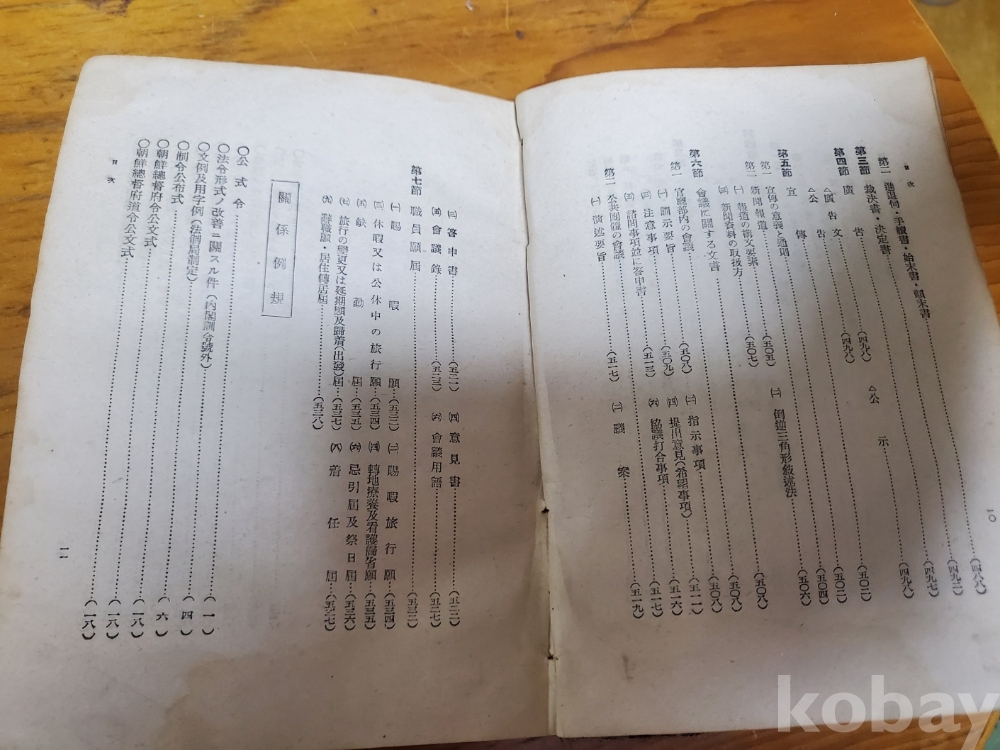 目次
第二 進退伺・手續書・始末書・顚末書……(四八八)
裁決書・決定書……(四九二)
第三節 廣告……(四九七)
△廣告……(四九八) △公示……(四九八)
第四節 廣告文……(四九八)
△公告……(五〇二)
宣傳……(五〇四)
第五節
第一 宣傳の意義と通則……(五〇六)
第二 新聞報道……(五〇五)
(一) 報道的衝文要素……(五〇七) (二) 倒鎚三角形敍述法……(五〇八)
(三) 新聞資料の取扱方……(五〇八)
第六節 會議に關する文書……(五〇八)
第一 官廳部内の會議……(五〇八)
(一) 訓示要旨……(五〇九) (二) 指示事項……(五一一)
(三) 注意事項……(五一三) (四) 提出意見(希望事項)……(五一六)
(五) 諮問事項並に答申書 (六) 協議打合事項……(五一七)
第二 公共團體の會議
(一) 演述要旨……(五一七) (二) 議案……(五一九)
一〇
(三) 答申書……(五二一) (四) 意見書……(五二二)
(五) 會議錄……(五二三) (六) 會議用語……(五二七)
第七節 職員願屆……(五三二)
(一) 賜暇願……(五三二) (二) 賜暇旅行願……(五三四)
(三) 休暇又は公休中の旅行願……(五三四) (四) 轉地療養及看護歸省願……(五三五)
(五) 缺勤屆……(五三五) (六) 忌引屆及祭日屆……(五三六)
(七) 旅行の變更又は延期願及歸着(出發)屆……(五三七) (八) 着任屆……(五二七)
(九) 辭職願・居住轉居屆……(五三八)
關係例規
〇公式令……(一)
〇法令形式ノ改善ニ關スル件(内閣訓令號外)……(四)
〇文例及用字例(法制局制定)……(六)
〇制令公布式……(一八)
〇朝鮮總督府令公文式……(一八)
〇朝鮮總督府道令公文式……(一八)
目次
一一
kobay